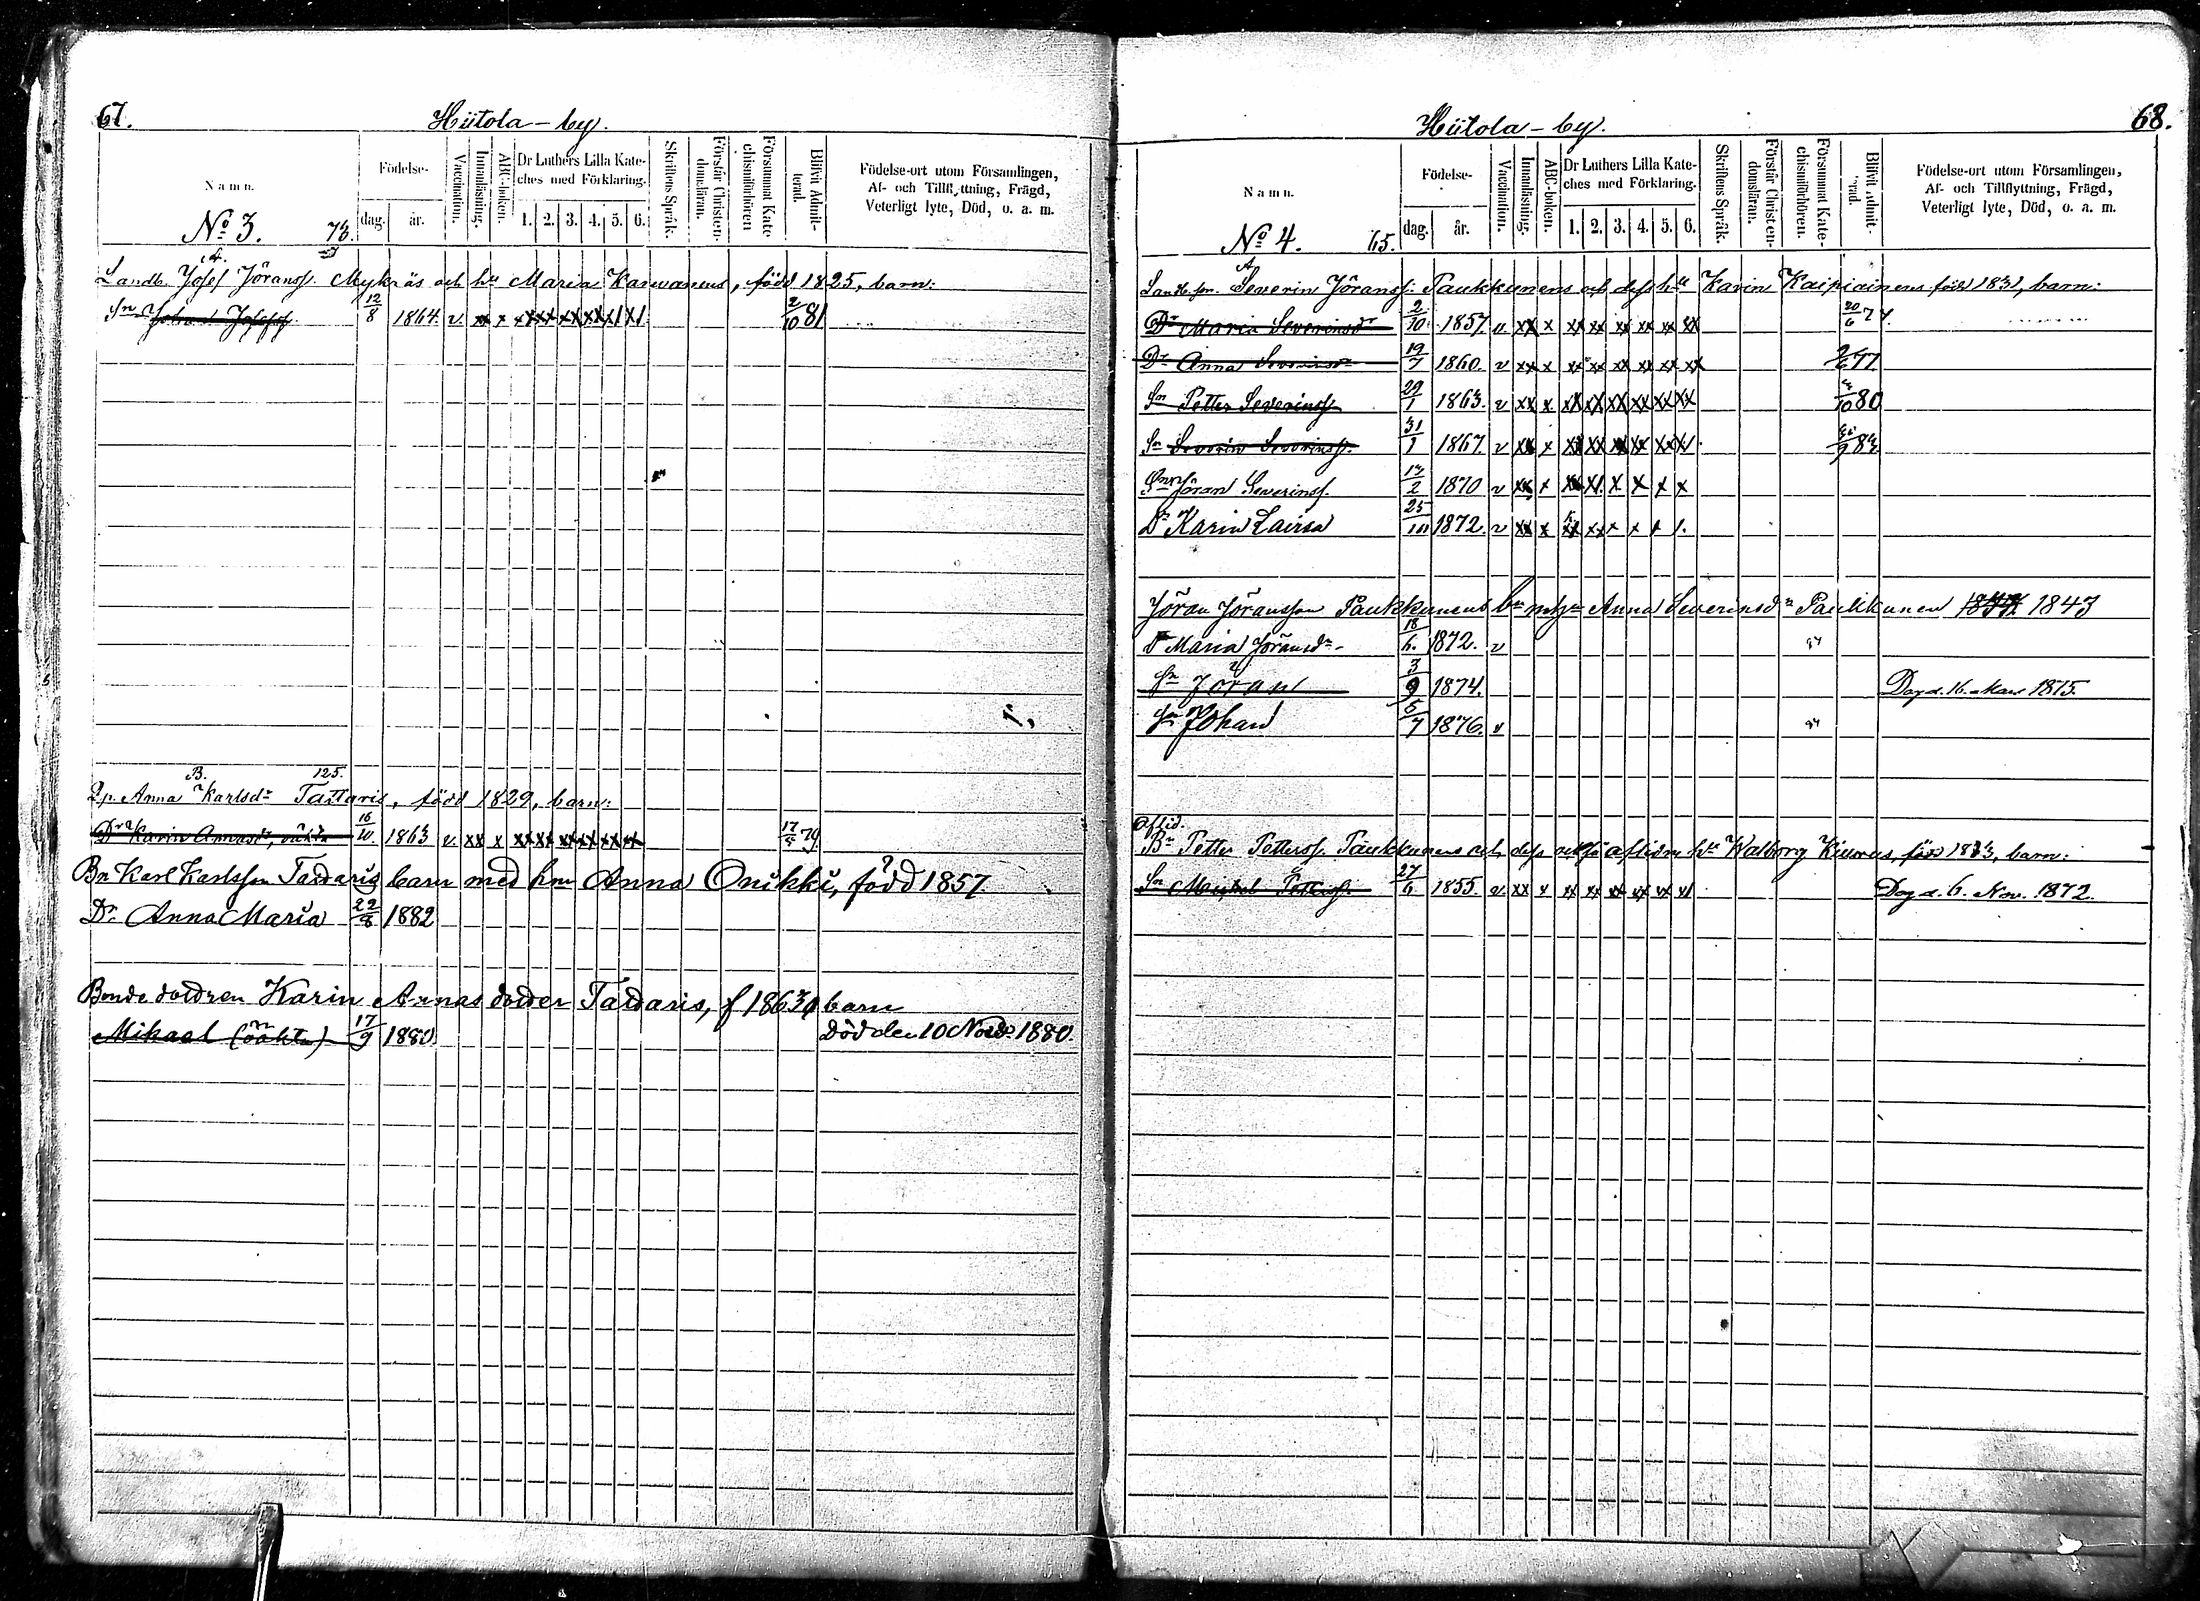 67.
Hiitola-by.
Namn.
Födelse-
dag.
år.
Vaccination.
Innanläsning.
ABC-boken.
Dr Luthers Lilla Kate-
ches med Förklaring.
1. 2. 3. 4. 5. 6.
Skriftens Språk.
Förstår Christen-
domsläran.
Försummat Kate-
chismiförhören
Blifvit Admit-
terad.
Födelse-ort utom Församlingen,
Af- och Tillflyttning, Frägd,
Veterligt lyte, Död, o. a. m.
No 3. 73.
A.
Landb. Josef Jöranss. Mykräs och hu Maria Karvanens, född 1825, barn:
Sn Johan Josefss. 12/8 1864. v xx x xx xx xx xx x/ x/ 2/10 81
B. 125.
Anna Karlsdr Tattaris, född 1829, barn:
Dr Karin Annasdr, oäkta 16/10. 1863 v. xx x xx xx xx xx xx xx 17/5 79.
Bn Karl Karlsson Tardaris barn med hm Anna Onikki, född 1857.
Dr Anna Maria 22/8 1882
Bonde dotdren Karin Annas dotder Tardaris, f 1863, barn
Mikael (oäkta) 17/9 1880. Död den 10 Nov. 1880.
68.
Hiitola-by.
Namn.
Födelse-
dag.
år.
Vaccination.
Innanläsning.
ABC-boken.
Dr Luthers Lilla Kate-
ches med Förklaring.
1. 2. 3. 4. 5. 6.
Skriftens Språk.
Förstår Christen-
domsläran.
Försummat Kate-
chismiförhören.
Blifvit Admit-
terad.
Födelse-ort utom Församlingen,
Af- och Tillflyttning, Frägd,
Veterligt lyte, Död, o. a. m.
No 4. 65.
A
Landb. sn. Severin Jöranss. Paukkunens och dess hu Karin Kaipiainens född 1831, barn:
Dr Maria Severinsdr 2/10. 1857. v xx x xx xx xx xx xx xx 20/6 74.
Dr Anna Severinsdr 19/7 1860. v xx x xx xx xx xx xx xx 2/6 77
Sn Petter Severinss. 29/1 1863. v xx x xx xx xx xx xx xx 3/10 80
Sn Severin Severinss. 31/1 1867. v xx x xx xx xx xx xx x/ 83
Sn Jöran Severinss. 13/2 1870 v xx x xx x/ x x x x
Dr Karin Lairsa 25/10 1872. v xx x xx xx x x / /.
Jöran Jöransson Paukkunens bn m hn Anna Severinsdr Paukkunen 1843
Dr Maria Jöransdr 18/6. 1872. v
Sn Jöran 3/9 1874. Dog d. 16. Mars 1875.
Sn Johan 5/7 1876. v
Aflid.
Bn Petter Petterss. Paukkunens och dess också aflidne hu Walborg Kiurus, född 1813, barn:
Sn Michel Petterss. 27/6. 1855. v xx x xx xx xx xx xx x/ Dog d. 6. Nov. 1872.